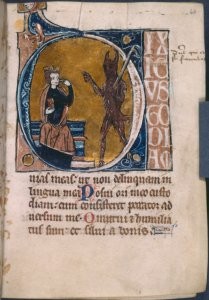 IXI
CUS
TODI
AM
uias meas ut non delinquam in
lingua mea Posui ori meo custo
diam: cum consisteret peccator ad
uersum me Omutui et humilia
tus sum: et silui a bonis